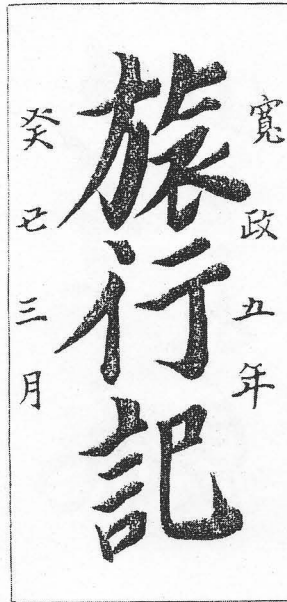 寛政五年
旅行記
癸丑三月